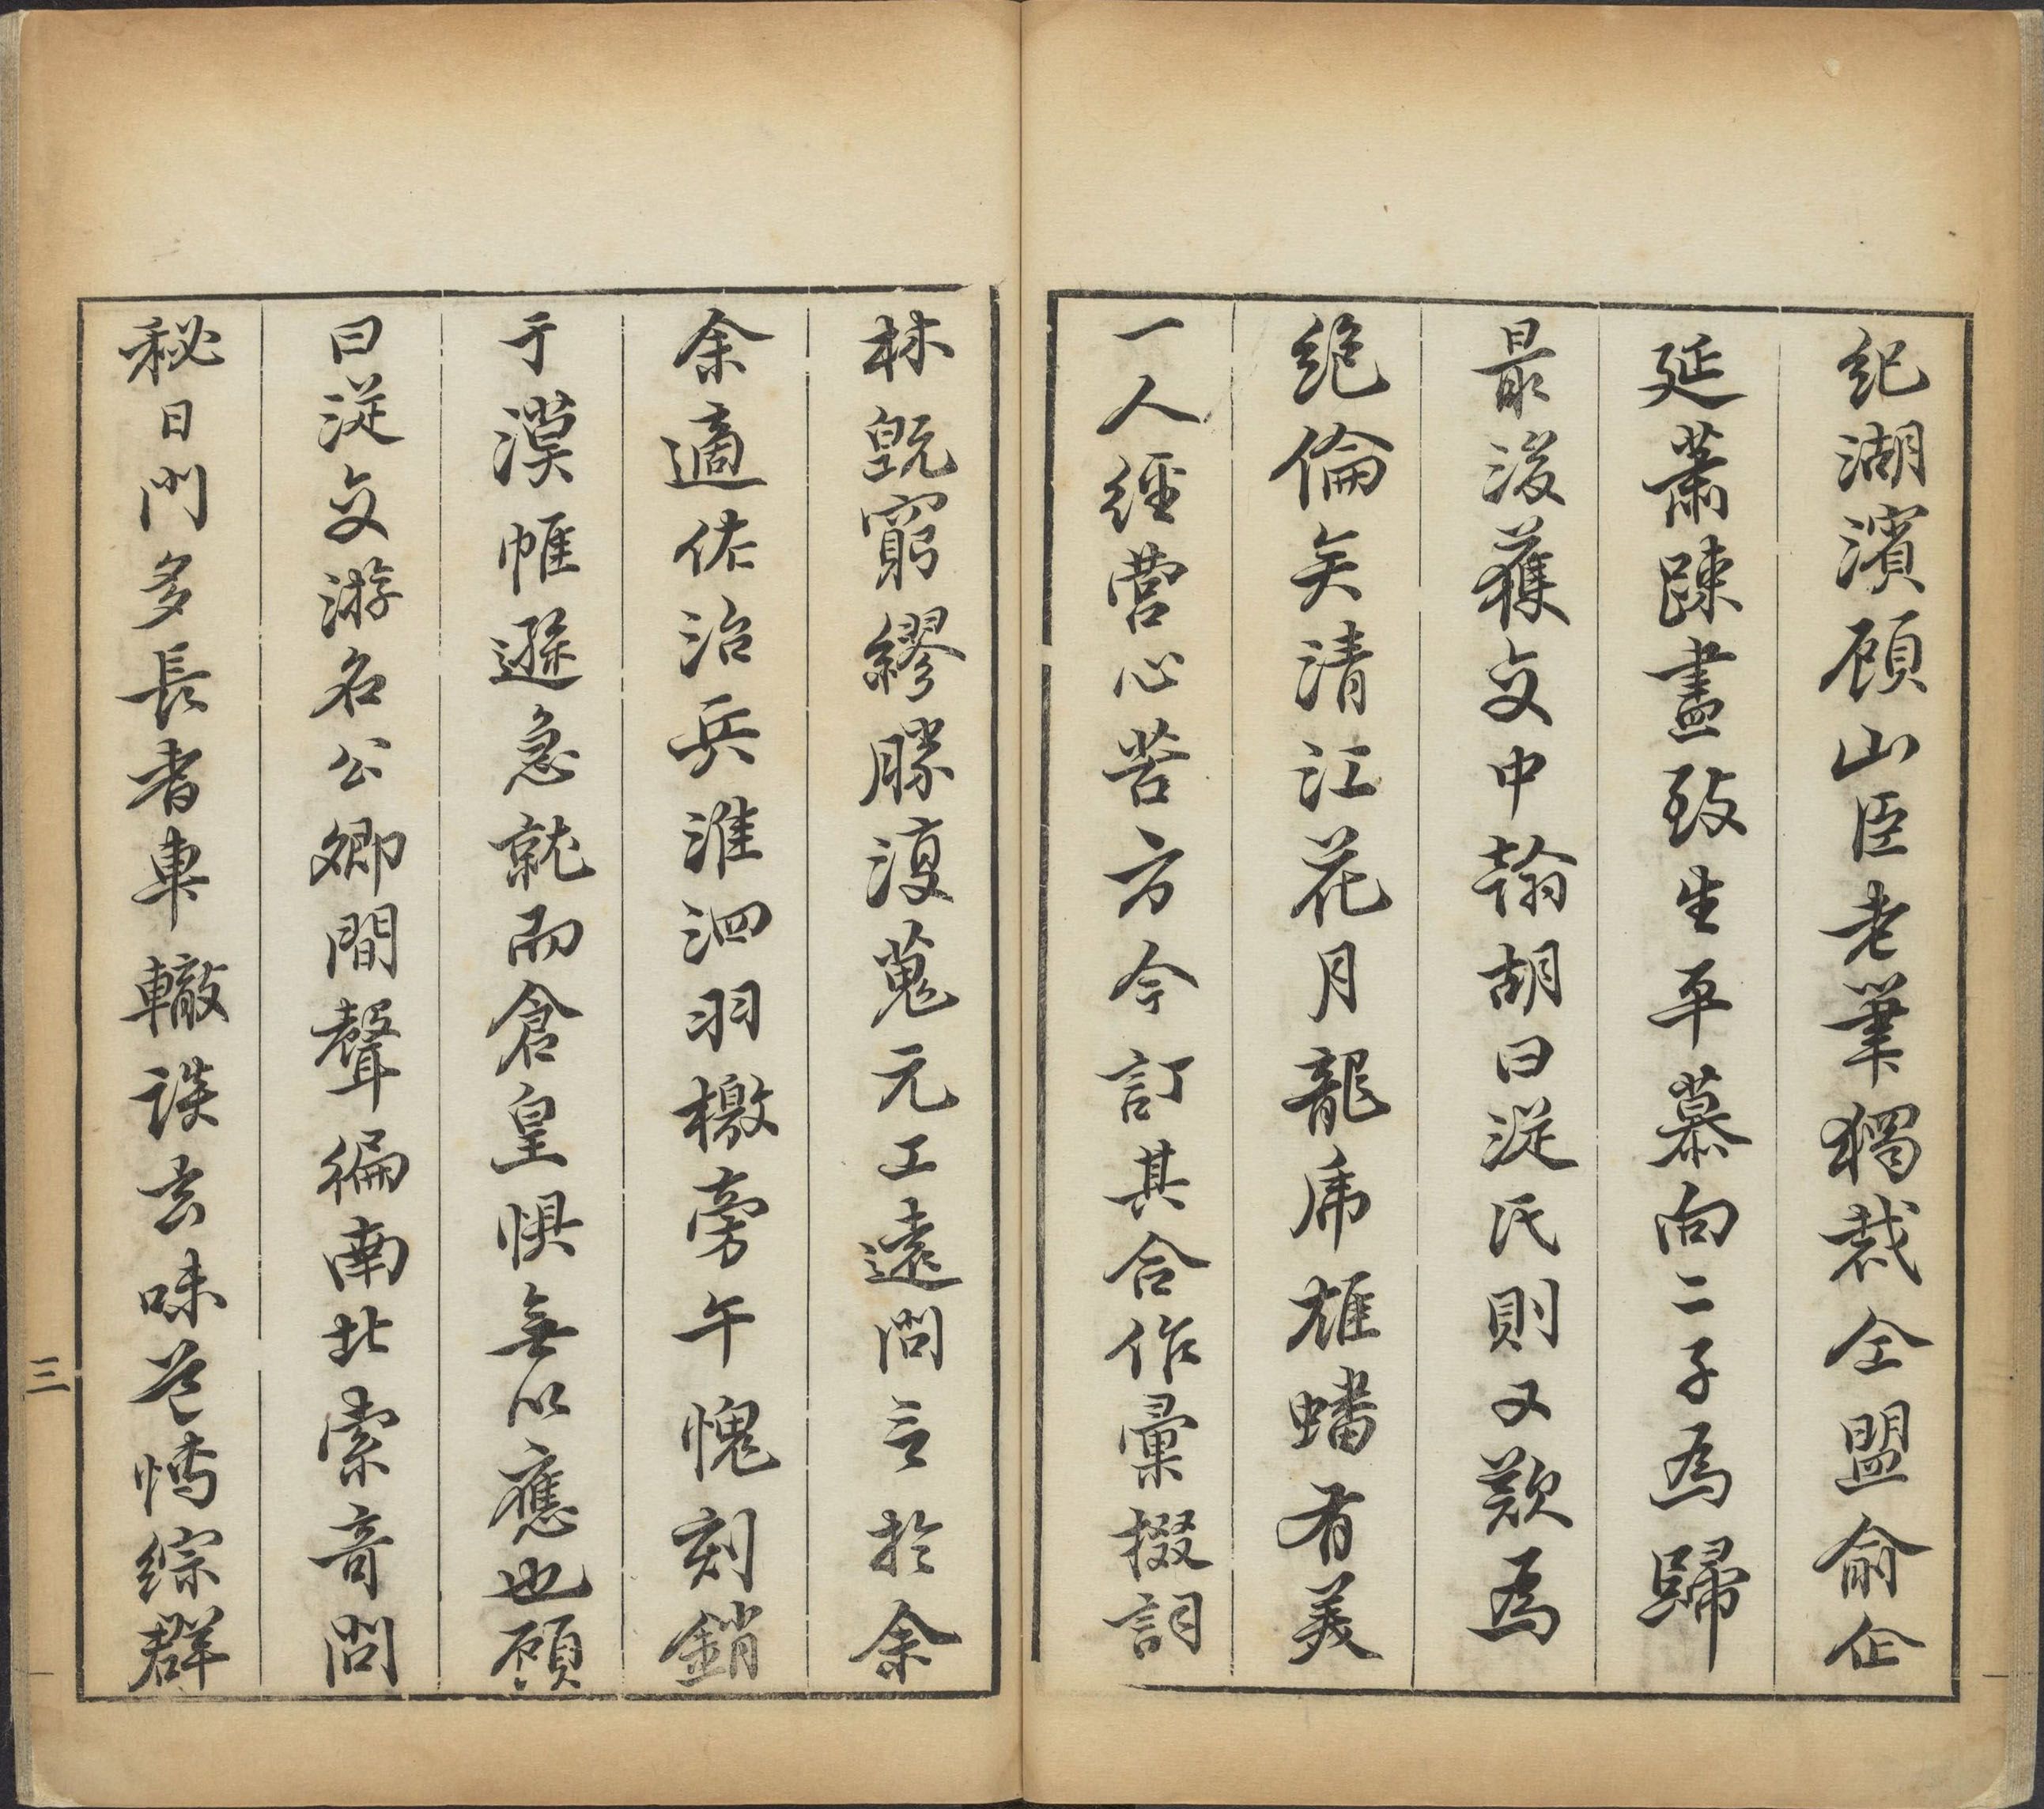 紀湖濱顧山臣老筆獨裁仝盟俞企
延蕭踈畫致生平慕向二子為歸
最後獲交中翰胡曰從氏則又歎為
絕倫矣清江花月龍虎雄蟠有美
一人經營心苦方今訂其合作彙掇詞
林既窮繆勝復蒐元工遠問言於余
余適佐治兵淮泗羽檄旁午愧刻銷
于漠帷遜急就而倉皇惧無以應也顧
曰從交游名公卿間聲徧南北索音問
秘日門多長者車轍談玄味道博綜群
三